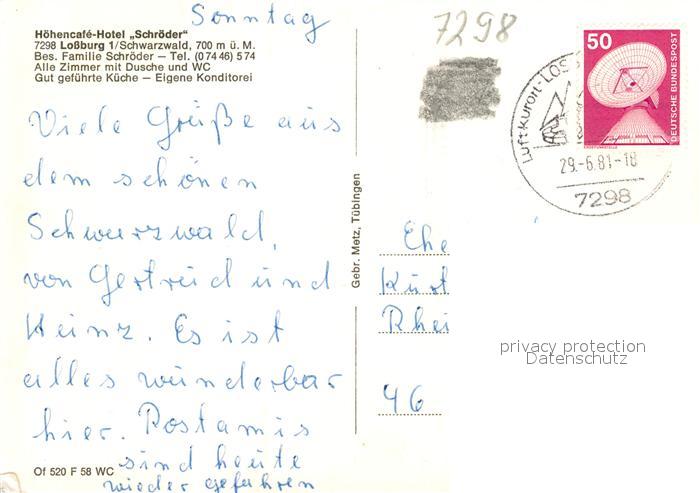 Sonntag
Höhencafé-Hotel „Schröder"
7298 Loßburg 1/Schwarzwald, 700 m ü. M.
Bes. Familie Schröder — Tel. (0 74 46) 5 74
Alle Zimmer mit Dusche und WC
Gut geführte Küche — Eigene Konditorei
Viele Grüße aus
dem schönen
Schwarzwald,
von Gertrud und
Heinz. Es ist
alles wunderbar
hier. Postamis
sind heute
wieder gefahren
Of 520 F 58 WC
Gebr. Metz, Tübingen
7298
Luftkurort · LOSS
29.-6.81-18
7298
50
DEUTSCHE BUNDESPOST
ERDEFUNKSTELLE
Ehe
Kurt
Rhei
46
privacy protection
Datenschutz